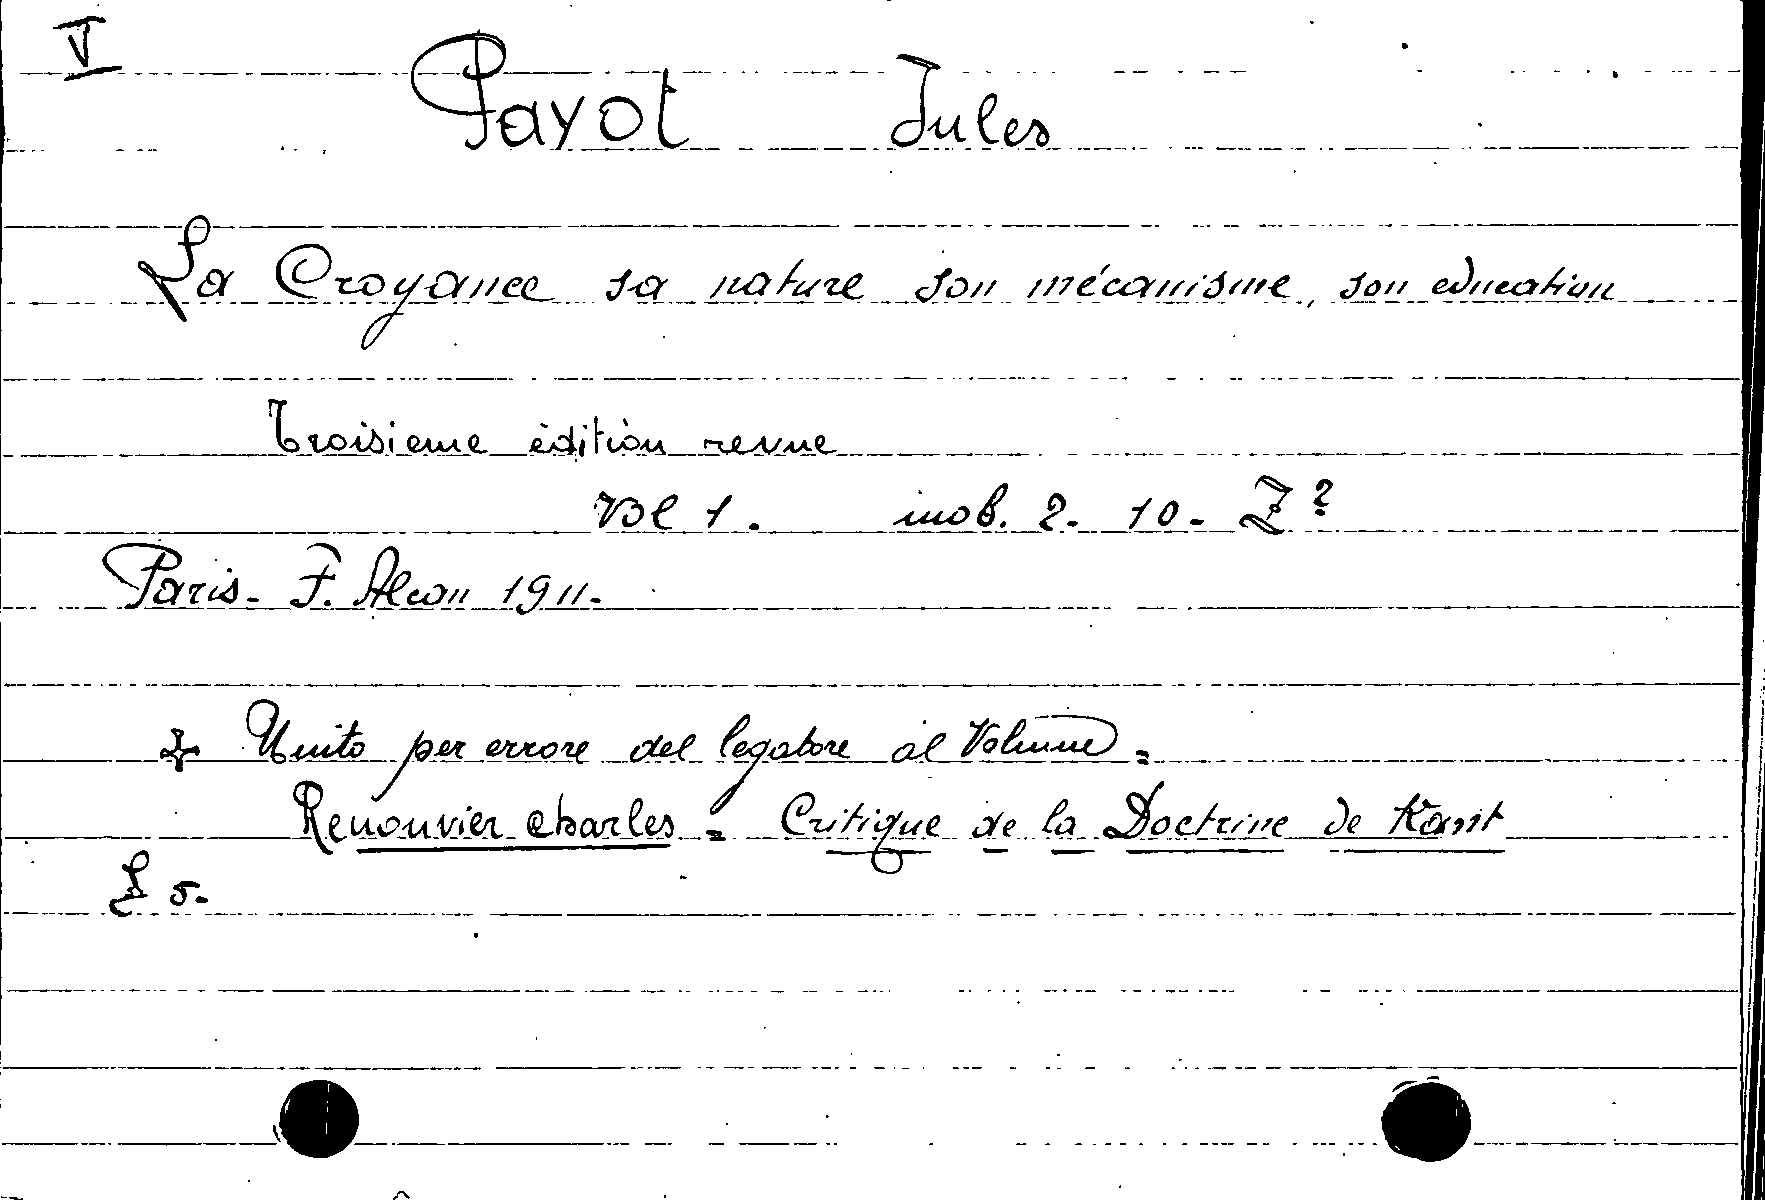 V
Payot Jules
La Croyance sa nature son mécanisme, son education
Troisieme édition revue
Vol 1. mob. 2. 10. Z?
Paris. F. Alcan 1911.
+ Unito per errore del legatore al Volume =
Renouvier Charles = Critique de la Doctrine de Kant
£ 5.